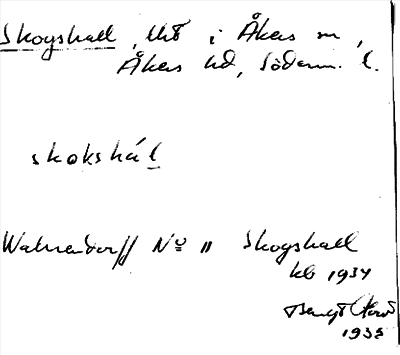 Skogshall, Uts i Åkers sn,
Åkers hd, Söderm. l.
skokshál
Wahrendorff No 11 Skogshall
kb 1934
Bengt
1935